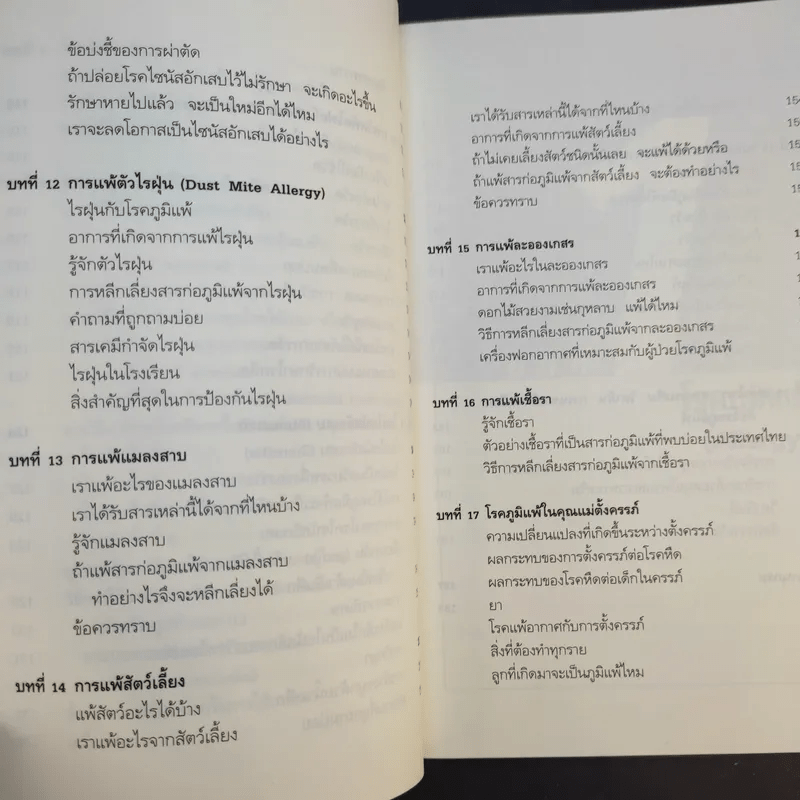 ข้อบ่งชี้ของการผ่าตัด
ถ้าปล่อยโรคไซนัสอักเสบไว้ไม่รักษา จะเกิดอะไรขึ้น
รักษาหายไปแล้ว จะเป็นใหม่อีกได้ไหม
เราจะลดโอกาสเป็นไซนัสอักเสบได้อย่างไร
บทที่ 12 การแพ้ตัวไรฝุ่น (Dust Mite Allergy)
ไรฝุ่นกับโรคภูมิแพ้
อาการที่เกิดจากการแพ้ไรฝุ่น
รู้จักตัวไรฝุ่น
การหลีกเลี่ยงสารก่อภูมิแพ้จากไรฝุ่น
คำถามที่ถูกถามบ่อย
สารเคมีกำจัดไรฝุ่น
ไรฝุ่นในโรงเรียน
สิ่งสำคัญที่สุดในการป้องกันไรฝุ่น
บทที่ 13 การแพ้แมลงสาบ
เราแพ้อะไรของแมลงสาบ
เราได้รับสารเหล่านี้ได้จากที่ไหนบ้าง
รู้จักแมลงสาบ
ถ้าแพ้สารก่อภูมิแพ้จากแมลงสาบ
ทำอย่างไรจึงจะหลีกเลี่ยงได้
ข้อควรทราบ
บทที่ 14 การแพ้สัตว์เลี้ยง
แพ้สัตว์อะไรได้บ้าง
เราแพ้อะไรจากสัตว์เลี้ยง
เราได้รับสารเหล่านี้ได้จากที่ไหนบ้าง 15
อาการที่เกิดจากการแพ้สัตว์เลี้ยง 15
ถ้าไม่เคยเลี้ยงสัตว์ชนิดนั้นเลย จะแพ้ได้ด้วยหรือ 15
ถ้าแพ้สารก่อภูมิแพ้จากสัตว์เลี้ยง จะต้องทำอย่างไร 15
ข้อควรทราบ 15
บทที่ 15 การแพ้ละอองเกสร
เราแพ้อะไรในละอองเกสร
อาการที่เกิดจากการแพ้ละอองเกสร
ดอกไม้สวยงามเช่นกุหลาบ แพ้ได้ไหม
วิธีการหลีกเลี่ยงสารก่อภูมิแพ้จากละอองเกสร
เครื่องฟอกอากาศที่เหมาะสมกับผู้ป่วยโรคภูมิแพ้
บทที่ 16 การแพ้เชื้อรา
รู้จักเชื้อรา
ตัวอย่างเชื้อราที่เป็นสารก่อภูมิแพ้ที่พบบ่อยในประเทศไทย
วิธีการหลีกเลี่ยงสารก่อภูมิแพ้จากเชื้อรา
บทที่ 17 โรคภูมิแพ้ในคุณแม่ตั้งครรภ์
ความเปลี่ยนแปลงที่เกิดขึ้นระหว่างตั้งครรภ์
ผลกระทบของการตั้งครรภ์ต่อโรคหืด
ผลกระทบของโรคหืดต่อเด็กในครรภ์
ยา
โรคแพ้อากาศกับการตั้งครรภ์
สิ่งที่ต้องทำทุกราย
ลูกที่เกิดมาจะเป็นภูมิแพ้ไหม